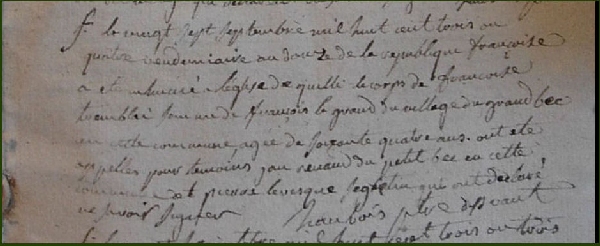 le vingt sept septembre mil huit cent trois ou
quatre vendemiaire an douze de la republique françoise
a été inhumé leglise de quilli le corps de françoise
tremblai femme de françois le grand du village du grand bec
en cette commune agee de soixante quatre ans. ont été
appelles pour temoins jan renaud du petit bec en cette
commune et pierre levesque qui ont declaré
ne savoir signer ptre
mil huit cent trois ou trois